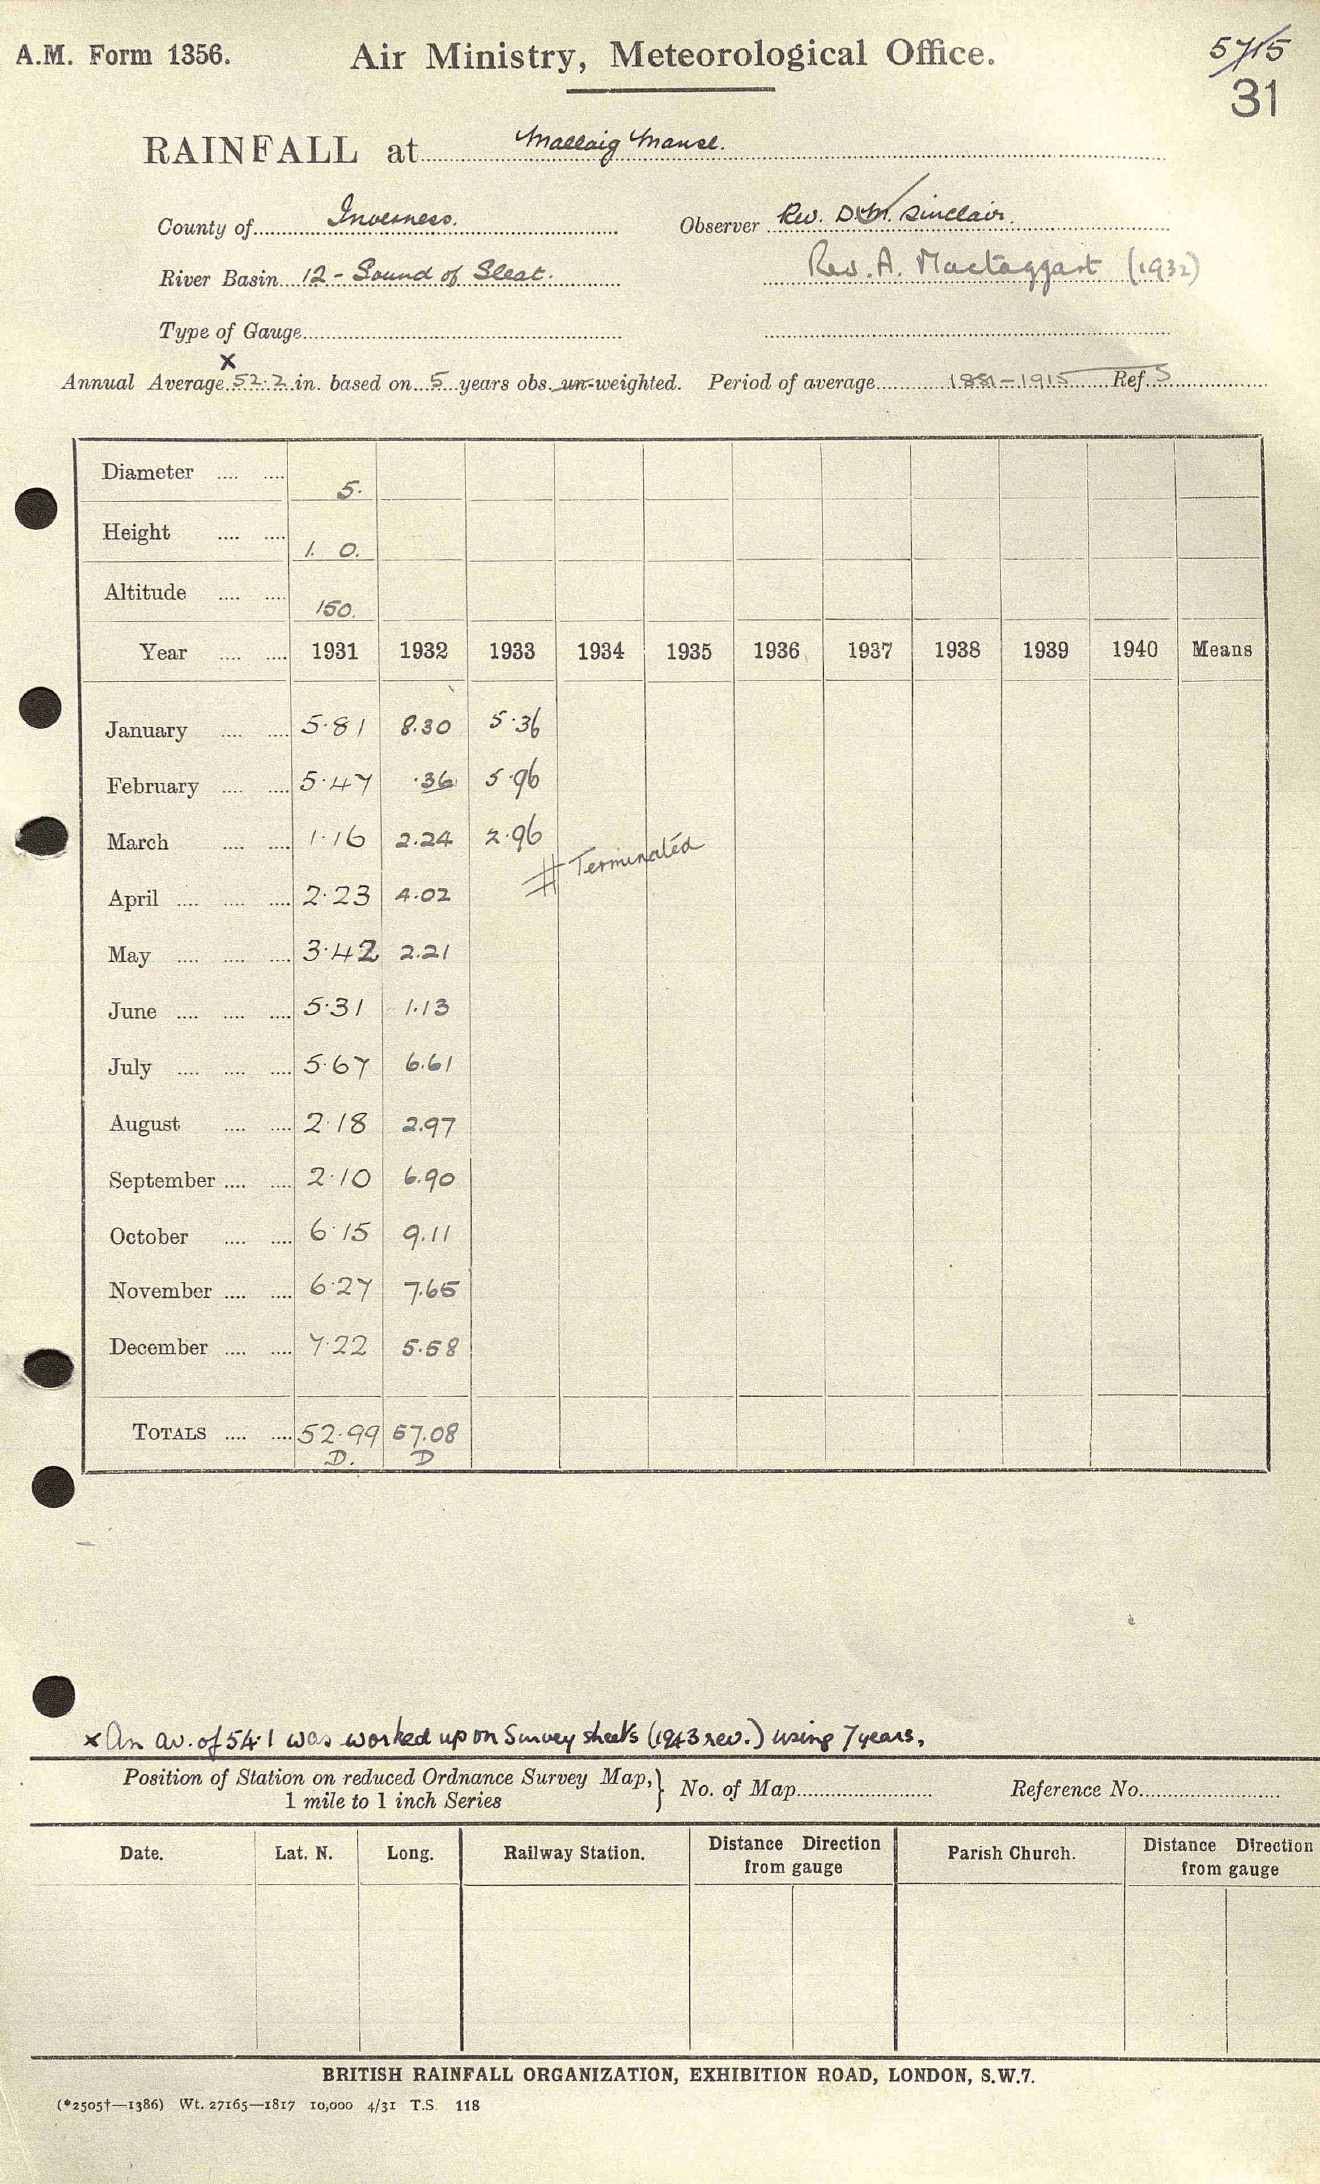 A.M. Form 1356.
Air Ministry, Meteorological Office.
5715
31
RAINFALL at Mallaig Manse.
County of Inverness.
Observer Rev. D.M. Sinclair.
River Basin 12 - Sound of Sleat.
Rev. A. Mactaggart (1932)
Type of Gauge
x
Annual Average 52.2 in. based on 5 years obs. un-weighted. Period of average 1881-1915 Ref. S
Diameter 5.
Height 1. 0.
Altitude 150.
Year 1931 1932 1933 1934 1935 1936 1937 1938 1939 1940 Means
January 5.81 8.30 5.36
February 5.47 .36 5.96
March 1.16 2.24 2.96
Terminated
April 2.23 4.02
May 3.42 2.21
June 5.31 1.13
July 5.67 6.61
August 2.18 2.97
September 2.10 6.90
October 6.15 9.11
November 6.27 7.65
December 7.22 5.58
TOTALS 52.99 57.08
D. D
x An av. of 54.1 was worked up on Survey sheets (1943 rev.) using 7 years.
Position of Station on reduced Ordnance Survey Map,} No. of Map Reference No.
1 mile to 1 inch Series
Date. Lat. N. Long. Railway Station. Distance Direction from gauge Parish Church. Distance Direction from gauge
BRITISH RAINFALL ORGANIZATION, EXHIBITION ROAD, LONDON, S.W.7.
(*2505†—1386) Wt. 27165—1817 10,000 4/31 T.S. 118